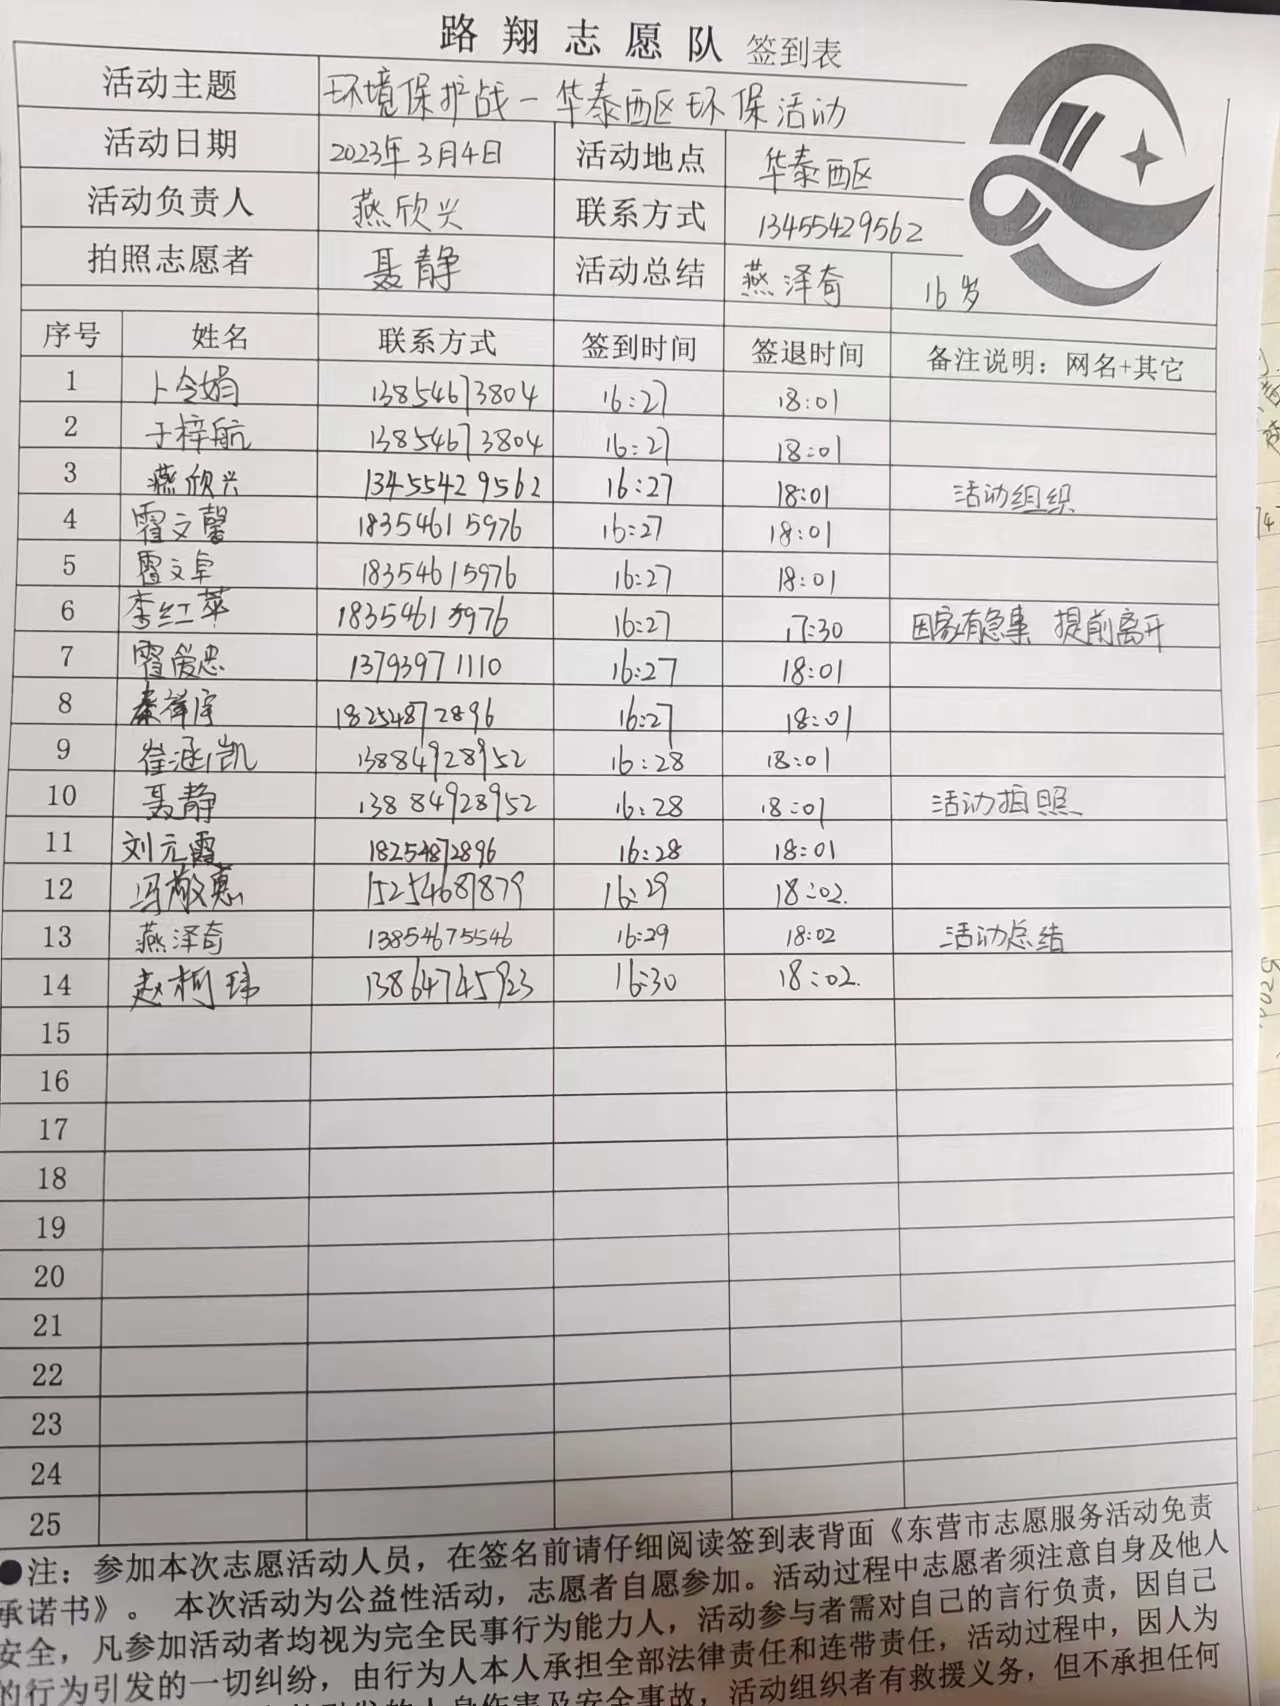 路翔志愿队 签到表
活动主题 环境保护战-华泰西区环保活动
活动日期 2023年3月4日 活动地点 华泰西区
活动负责人 燕欣兴 联系方式 13455429562
拍照志愿者 聂静 活动总结 燕泽奇 16岁
序号 姓名 联系方式 签到时间 签退时间 备注说明：网名+其它
1 卜令娟 13854673804 16:27 18:01
2 于梓航 13854673804 16:27 18:01
3 燕欣兴 13455429562 16:27 18:01 活动组织
4 霍文馨 18354615976 16:27 18:01
5 霍文卓 18354615976 16:27 18:01
6 李红苹 18354615976 16:27 17:30 因家有急事 提前离开
7 霍爱忠 13793971110 16:27 18:01
8 秦祥宇 18254872896 16:27 18:01
9 崔涵凯 13884928952 16:28 18:01
10 聂静 13884928952 16:28 18:01 活动拍照
11 刘元霞 18254872896 16:28 18:01
12 冯敬惠 15254687879 16:29 18:02.
13 燕泽奇 13854675546 16:29 18:02 活动总结
14 赵柯玮 13864745923 16:30 18:02.
15
16
17
18
19
20
21
22
23
24
25
●注：参加本次志愿活动人员，在签名前请仔细阅读签到表背面《东营市志愿服务活动免责
承诺书》。 本次活动为公益性活动，志愿者自愿参加。活动过程中志愿者须注意自身及他人
安全，凡参加活动者均视为完全民事行为能力人，活动参与者需对自己的言行负责，因自己
的行为引发的一切纠纷，由行为人本人承担全部法律责任和连带责任，活动过程中，因人为
引发的人身伤害及安全事故，活动组织者有救援义务，但不承担任何